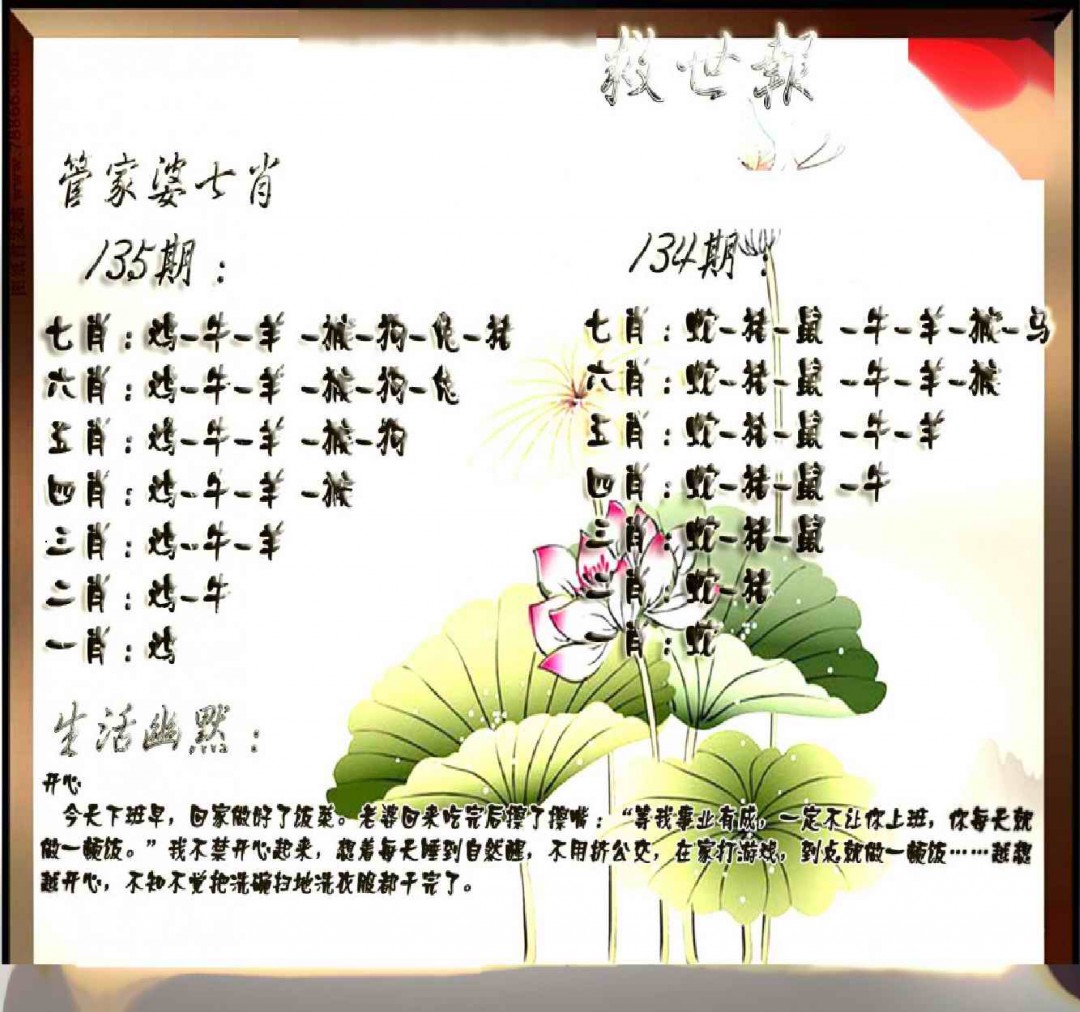 救世報
管家婆七肖
135期：
七肖：鸡-牛-羊-猴-狗-兔-猪
六肖：鸡-牛-羊-猴-狗-兔
五肖：鸡-牛-羊-猴-狗
四肖：鸡-牛-羊-猴
三肖：鸡-牛-羊
二肖：鸡-牛
一肖：鸡
134期：
七肖：蛇-猪-鼠-牛-羊-猴-马
六肖：蛇-猪-鼠-牛-羊-猴
五肖：蛇-猪-鼠-牛-羊
四肖：蛇-猪-鼠-牛
三肖：蛇-猪-鼠
二肖：蛇-猪
一肖：蛇
生活幽默：
开心
今天下班早，回家做好了饭菜。老婆回来吃完后擦了擦嘴：“等我事业有成，一定不让你上班，你每天就
做一顿饭。”我不禁开心起来，想着每天睡到自然醒，不用挤公交，在家打游戏，到点就做一顿饭……越想
越开心，不知不觉把洗碗扫地洗衣服都干完了。
www.78866.com